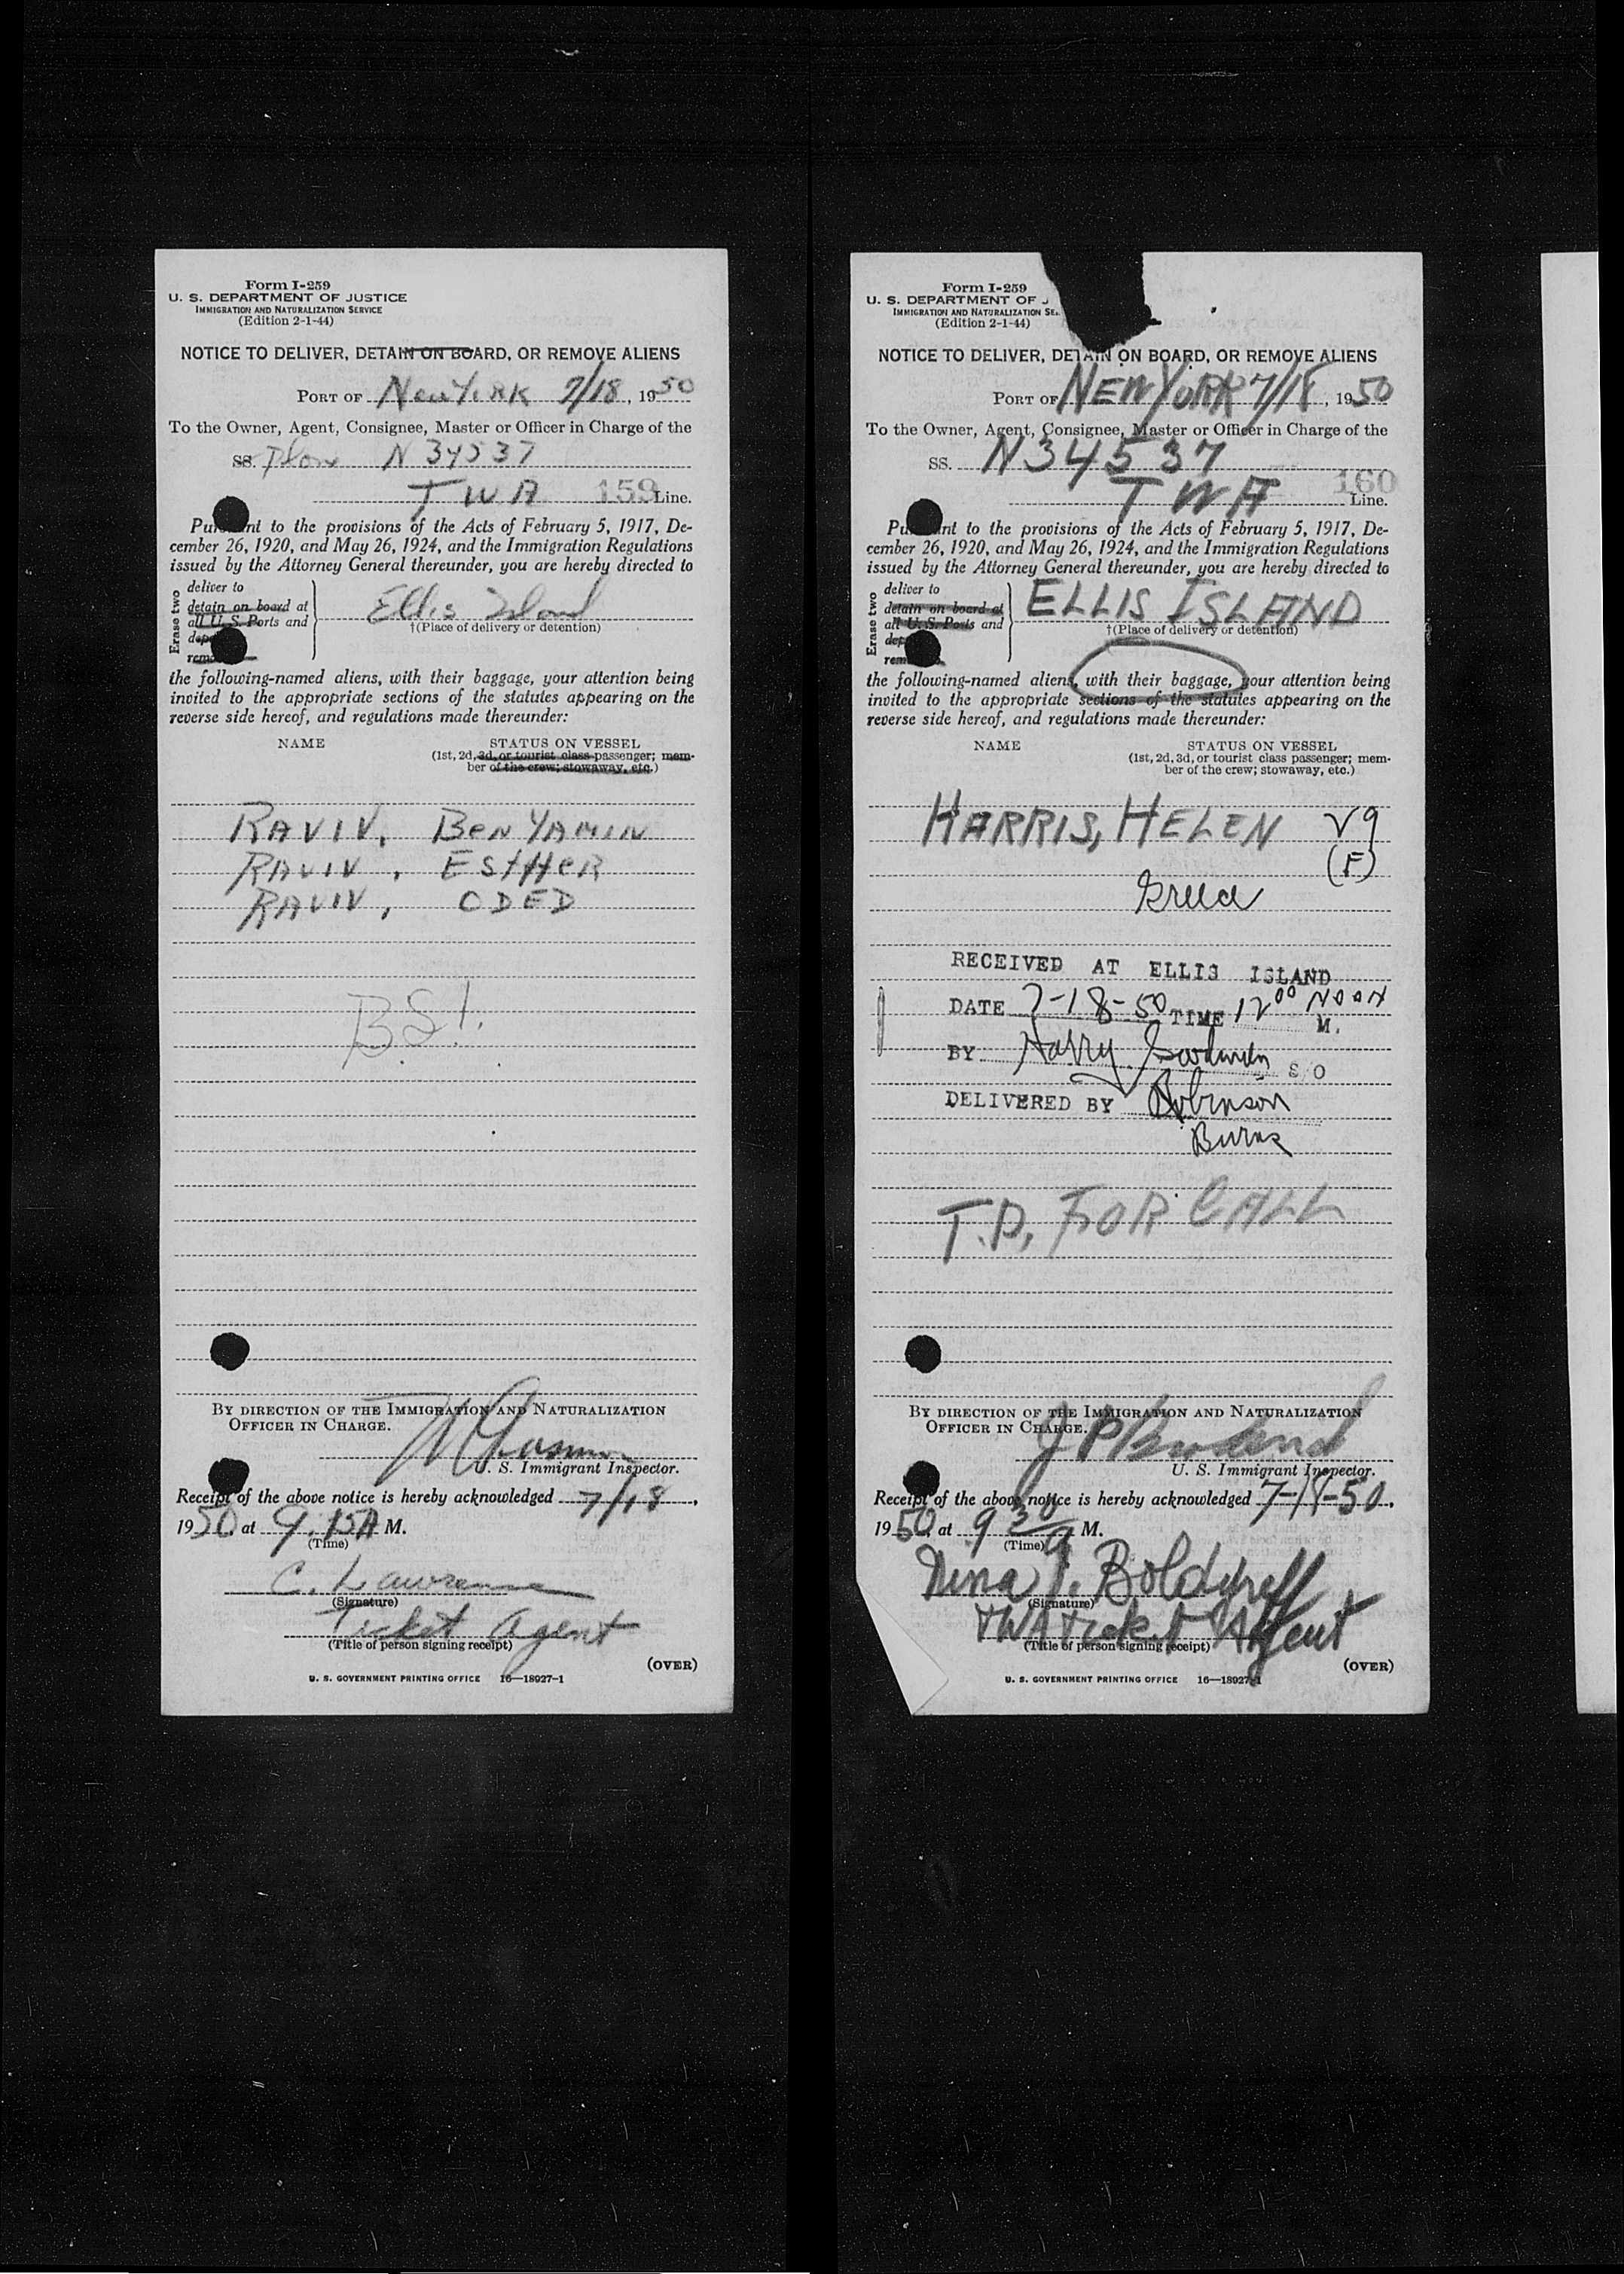 Form I-259
U. S. DEPARTMENT OF JUSTICE
IMMIGRATION AND NATURALIZATION SERVICE
(Edition 2-1-44)
NOTICE TO DELIVER, DETAIN ON BOARD, OR REMOVE ALIENS
PORT OF New York 7/18, 1950
To the Owner, Agent, Consignee, Master or Officer in Charge of the
SS. Plane N 34537
TWA 159 Line.
Pursuant to the provisions of the Acts of February 5, 1917, De-
cember 26, 1920, and May 26, 1924, and the Immigration Regulations
issued by the Attorney General thereunder, you are hereby directed to
Erase two
deliver to
detain on board at
all U. S. Ports and
Ellis Island
†(Place of delivery or detention)
the following-named aliens, with their baggage, your attention being
invited to the appropriate sections of the statutes appearing on the
reverse side hereof, and regulations made thereunder:
NAME STATUS ON VESSEL
(1st, 2d, 3d, or tourist class passenger; mem-
ber of the crew; stowaway, etc.)
RAVIV, BENYAMIN
RAVIV, ESTHER
RAVIV, ODED
BSI.
BY DIRECTION OF THE IMMIGRATION AND NATURALIZATION
OFFICER IN CHARGE.
U. S. Immigrant Inspector.
Receipt of the above notice is hereby acknowledged 7/18,
1950 at 9.15A M.
(Time)
C. Lawrence
(Signature)
Ticket Agent
(Title of person signing receipt)
(OVER)
U. S. GOVERNMENT PRINTING OFFICE 16—18927-1
Form I-259
U. S. DEPARTMENT OF J
IMMIGRATION AND NATURALIZATION SE
(Edition 2-1-44)
NOTICE TO DELIVER, DETAIN ON BOARD, OR REMOVE ALIENS
PORT OF NEW YORK 7/18, 1950
To the Owner, Agent, Consignee, Master or Officer in Charge of the
SS. N34537
TWA 160 Line.
Pursuant to the provisions of the Acts of February 5, 1917, De-
cember 26, 1920, and May 26, 1924, and the Immigration Regulations
issued by the Attorney General thereunder, you are hereby directed to
Erase two
deliver to
detain on board at
all U. S. Ports and
ELLIS ISLAND
†(Place of delivery or detention)
the following-named aliens, with their baggage, your attention being
invited to the appropriate sections of the statutes appearing on the
reverse side hereof, and regulations made thereunder:
NAME STATUS ON VESSEL
(1st, 2d, 3d, or tourist class passenger; mem-
ber of the crew; stowaway, etc.)
HARRIS, HELEN
(F)
RECEIVED AT ELLIS ISLAND
DATE 7-18-50 TIME 12 00 NOON M.
BY Harry Goodwin S/O
DELIVERED BY Robinson
Burns
T.D. FOR CALL
BY DIRECTION OF THE IMMIGRATION AND NATURALIZATION
OFFICER IN CHARGE.
U. S. Immigrant Inspector.
Receipt of the above notice is hereby acknowledged 7-18-50,
1950, at 9 30 a M.
(Time)
Boldyreff
(Signature)
TWA Ticket Agent
(Title of person signing receipt)
(OVER)
U. S. GOVERNMENT PRINTING OFFICE 16—18927-1